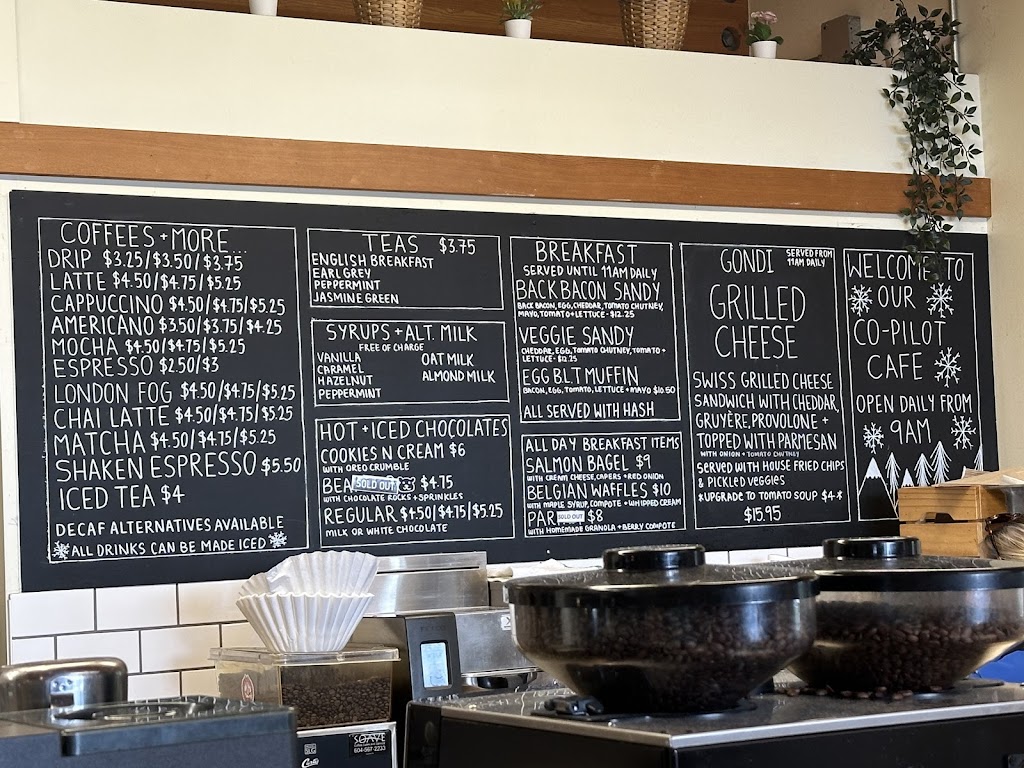 COFFEES + MORE...
DRIP $3.25/$3.50/$3.75
LATTE $4.50/$4.75/$5.25
CAPPUCCINO $4.50/$4.75/$5.25
AMERICANO $3.50/$3.75/$4.25
MOCHA $4.50/$4.75/5.25
ESPRESSO $2.50/$3
LONDON FOG $4.50/$4.75/$5.25
CHAI LATTE $4.50/$4.75/$5.25
MATCHA $4.50/$4.75/$5.25
SHAKEN ESPRESSO $5.50
ICED TEA $4
DECAF ALTERNATIVES AVAILABLE
ALL DRINKS CAN BE MADE ICED
TEAS $3.75
ENGLISH BREAKFAST
EARL GREY
PEPPERMINT
JASMINE GREEN
SYRUPS + ALT. MILK
FREE OF CHARGE
VANILLA
CARAMEL
HAZELNUT
PEPPERMINT
OAT MILK
ALMOND MILK
HOT + ICED CHOCOLATES
COOKIES N CREAM $6
WITH OREO CRUMBLE
BEA SOLD OUT $4.75
WITH CHOCOLATE ROCKS + SPRINKLES
REGULAR $4.50/$4.75/$5.25
MILK OR WHITE CHOCOLATE
BREAKFAST
SERVED UNTIL 11AM DAILY
BACK BACON SANDY
BACK BACON, EGG, CHEDDAR, TOMATO CHUTNEY,
MAYO, TOMATO + LETTUCE - $12.25
VEGGIE SANDY
CHEDDAR, EGG, TOMATO CHUTNEY, TOMATO +
LETTUCE - $12.25
EGG B.L.T MUFFIN
BACON, EGG, TOMATO, LETTUCE + MAYO $10.50
ALL SERVED WITH HASH
ALL DAY BREAKFAST ITEMS
SALMON BAGEL $9
WITH CREAM CHEESE, CAPERS + RED ONION
BELGIAN WAFFLES $10
WITH MAPLE SYRUP, COMPOTE + WHIPPED CREAM
PAR SOLD OUT $8
WITH HOMEMADE GRANOLA + BERRY COMPOTE
GONDI
SERVED FROM
11AM DAILY
GRILLED
CHEESE
SWISS GRILLED CHEESE
SANDWICH WITH CHEDDAR,
GRUYÈRE, PROVOLONE +
TOPPED WITH PARMESAN
WITH ONION + TOMATO CHUTNEY
SERVED WITH HOUSE FRIED CHIPS
& PICKLED VEGGIES
*UPGRADE TO TOMATO SOUP $4*
$15.95
WELCOME TO
OUR
CO-PILOT
CAFE
OPEN DAILY FROM
9AM
SOAVE
604-567-2233